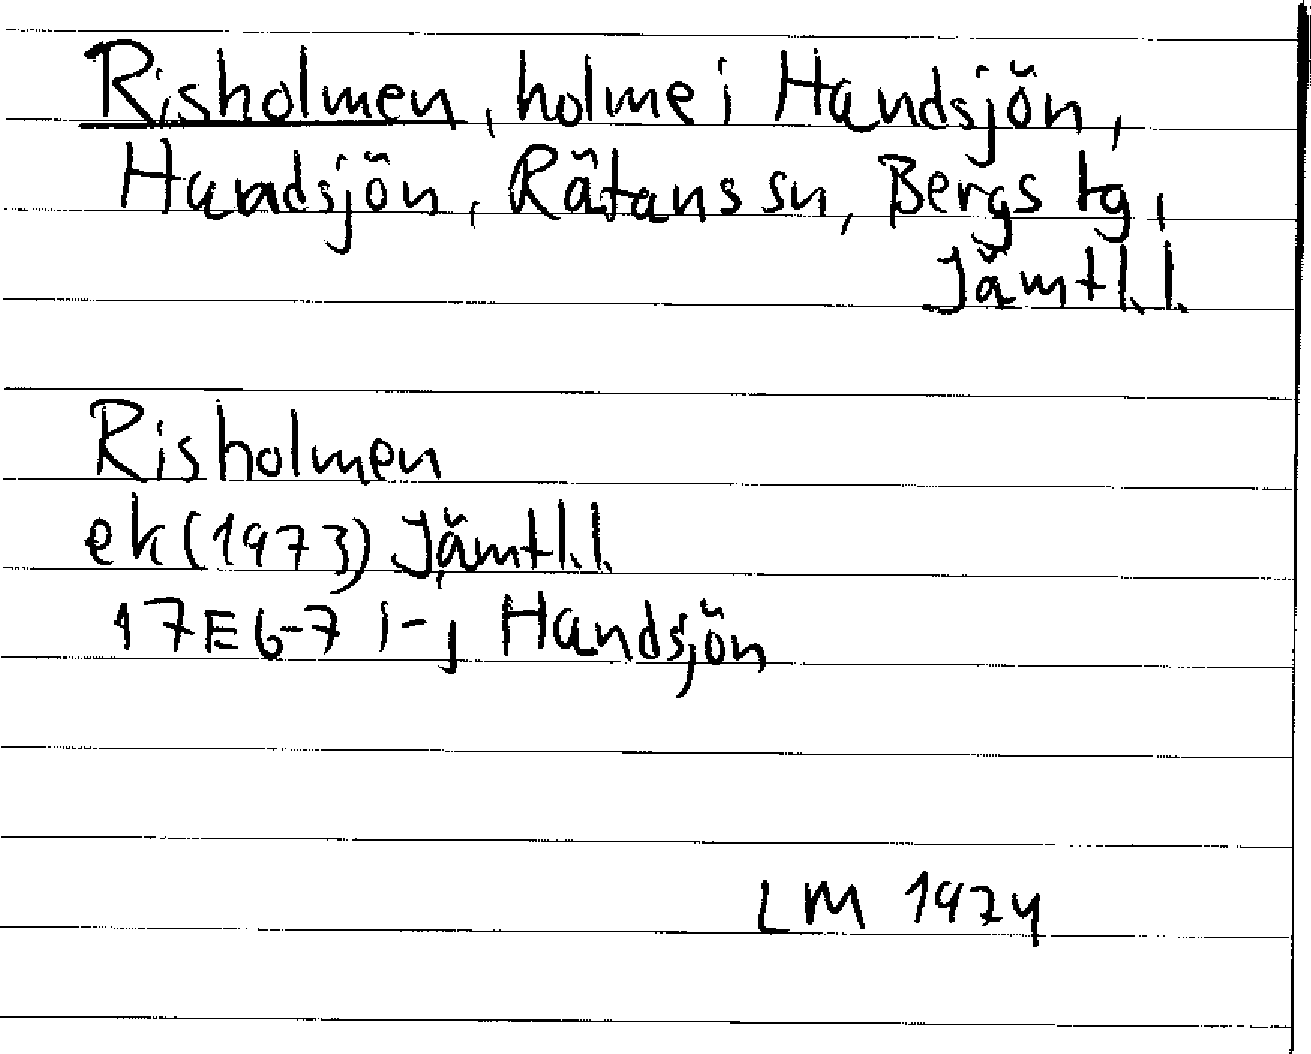 Risholmen, holme i Handsjön,
Handsjön, Rätans sn, Bergs tg,
Jämtl.l.
Risholmen
ek (1973) Jämtl.l.
17E6-7 i-j Handsjön
LM 1974